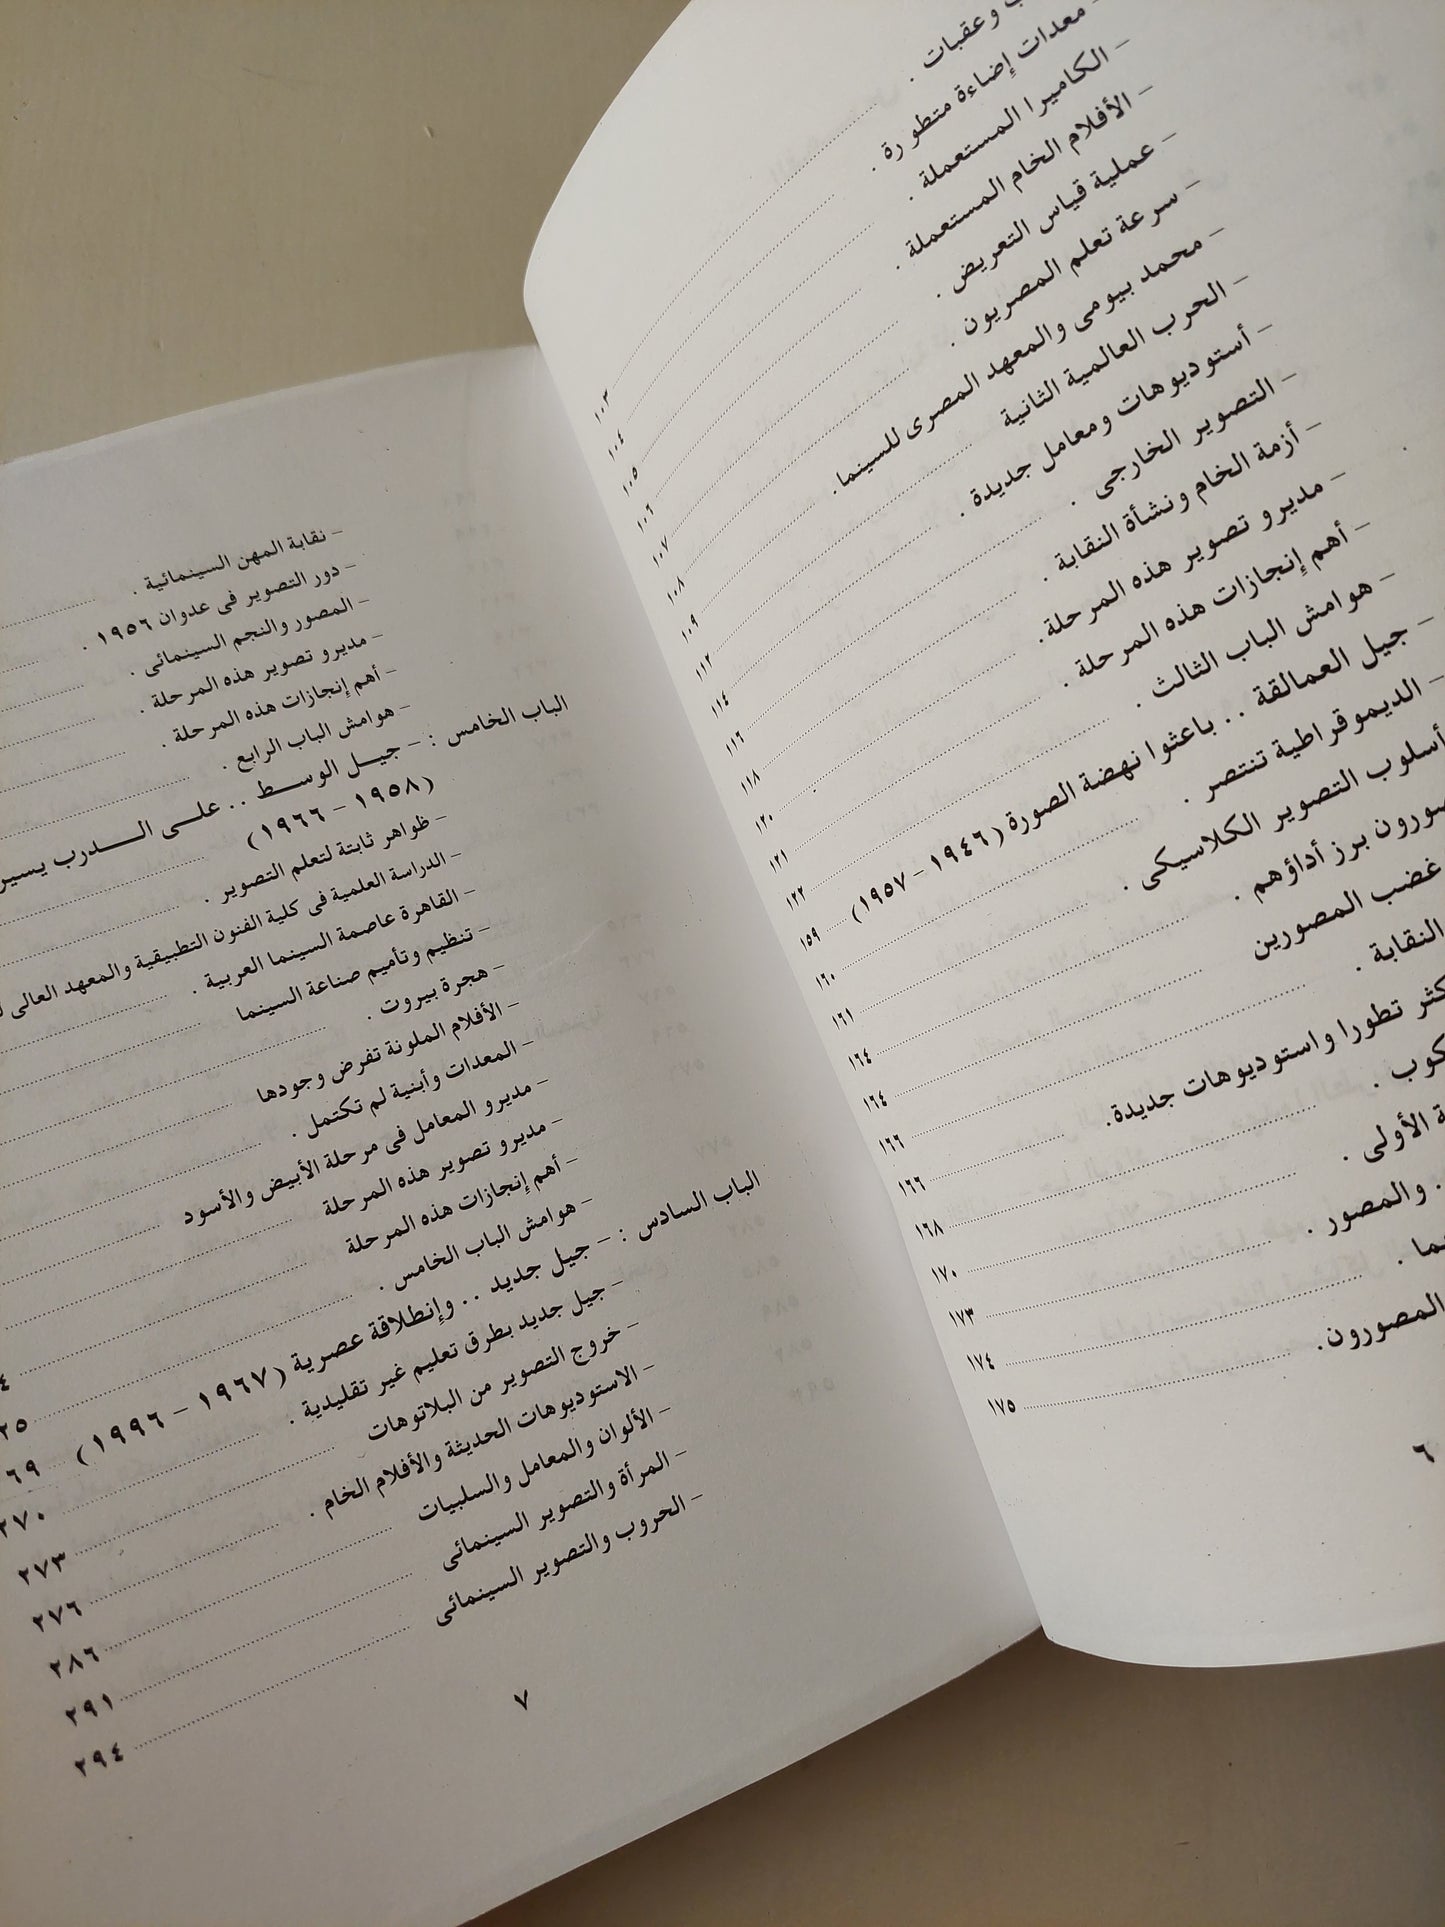 وعقبات .
– معدات إضاءة متطورة . ١٠٣
– الكاميرا المستعملة . ١٠٤
– الأفلام الخام المستعملة . ١٠٥
– عملية قياس التعريض . ١٠٦
– سرعة تعلم المصريون . ١٠٧
– محمد بيومى والمعهد المصرى للسينما . ١٠٨
– الحرب العالمية الثانية ١٠٩
– أستوديوهات ومعامل جديدة . ١١٢
– التصوير الخارجى . ١١٤
– أزمة الخام ونشأة النقابة . ١١٦
– مديرو تصوير هذه المرحلة . ١١٨
– أهم إنجازات هذه المرحلة . ١٢٠
– هوامش الباب الثالث . ١٢١
– جيل العمالقة .. باعثوا نهضة الصورة (١٩٤٦ – ١٩٥٧) ١٢٢
– الديموقراطية تنتصر . ١٥٩
أسلوب التصوير الكلاسيكى . ١٦٠
برز أداؤهم . ١٦١
غضب المصورين ١٦٤
النقابة . ١٦٤
تطورا واستوديوهات جديدة . ١٦٦
١٦٦
الأولى . ١٦٨
. والمصور . ١٧٠
١٧٣
المصورون . ١٧٤
١٧٥
٦
– نقابة المهن السينمائية .
– دور التصوير فى عدوان ١٩٥٦ .
– المصور والنجم السينمائى .
– مديرو تصوير هذه المرحلة .
– أهم إنجازات هذه المرحلة .
– هوامش الباب الرابع .
الباب الخامس : – جيل الوسط .. على الدرب يسير
(١٩٥٨ – ١٩٦٦)
– ظواهر ثابتة لتعلم التصوير .
– الدراسة العلمية فى كلية الفنون التطبيقية والمعهد العالى
– القاهرة عاصمة السينما العربية .
– تنظيم وتأميم صناعة السينما
– هجرة بيروت .
– الأفلام الملونة تفرض وجودها
– المعدات وأبنية لم تكتمل .
– مديرو المعامل فى مرحلة الأبيض والأسود
– مديرو تصوير هذه المرحلة
– أهم إنجازات هذه المرحلة
– هوامش الباب الخامس .
الباب السادس : – جيل جديد .. وإنطلاقة عصرية (١٩٦٧ – ١٩٩٦)
– جيل جديد بطرق تعليم غير تقليدية . ٢٧٠
– خروج التصوير من البلاتوهات ٢٧٣
– الاستوديوهات الحديثة والأفلام الخام . ٢٧٦
– الألوان والمعامل والسلبيات ٢٨٦
– المرأة والتصوير السينمائى ٢٩١
– الحروب والتصوير السينمائى ٢٩٤
٧